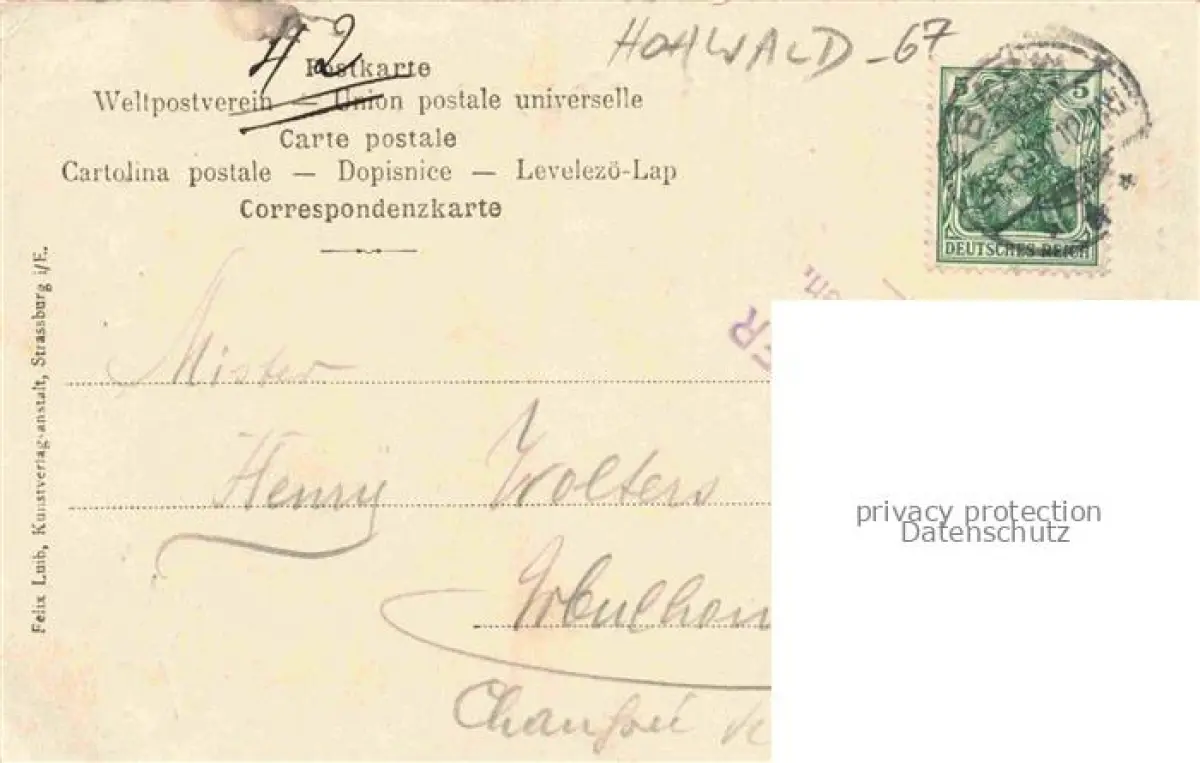 42
HOHWALD - 67
Postkarte
Weltpostverein — Union postale universelle
Carte postale
Cartolina postale — Dopisnice — Levelező-Lap
Correspondenzkarte
5 5
DEUTSCHES REICH
Felix Luib, Kunstverlag-anstalt, Strassburg i/E.
ER
Mister
Henry Wolters
privacy protection
Datenschutz